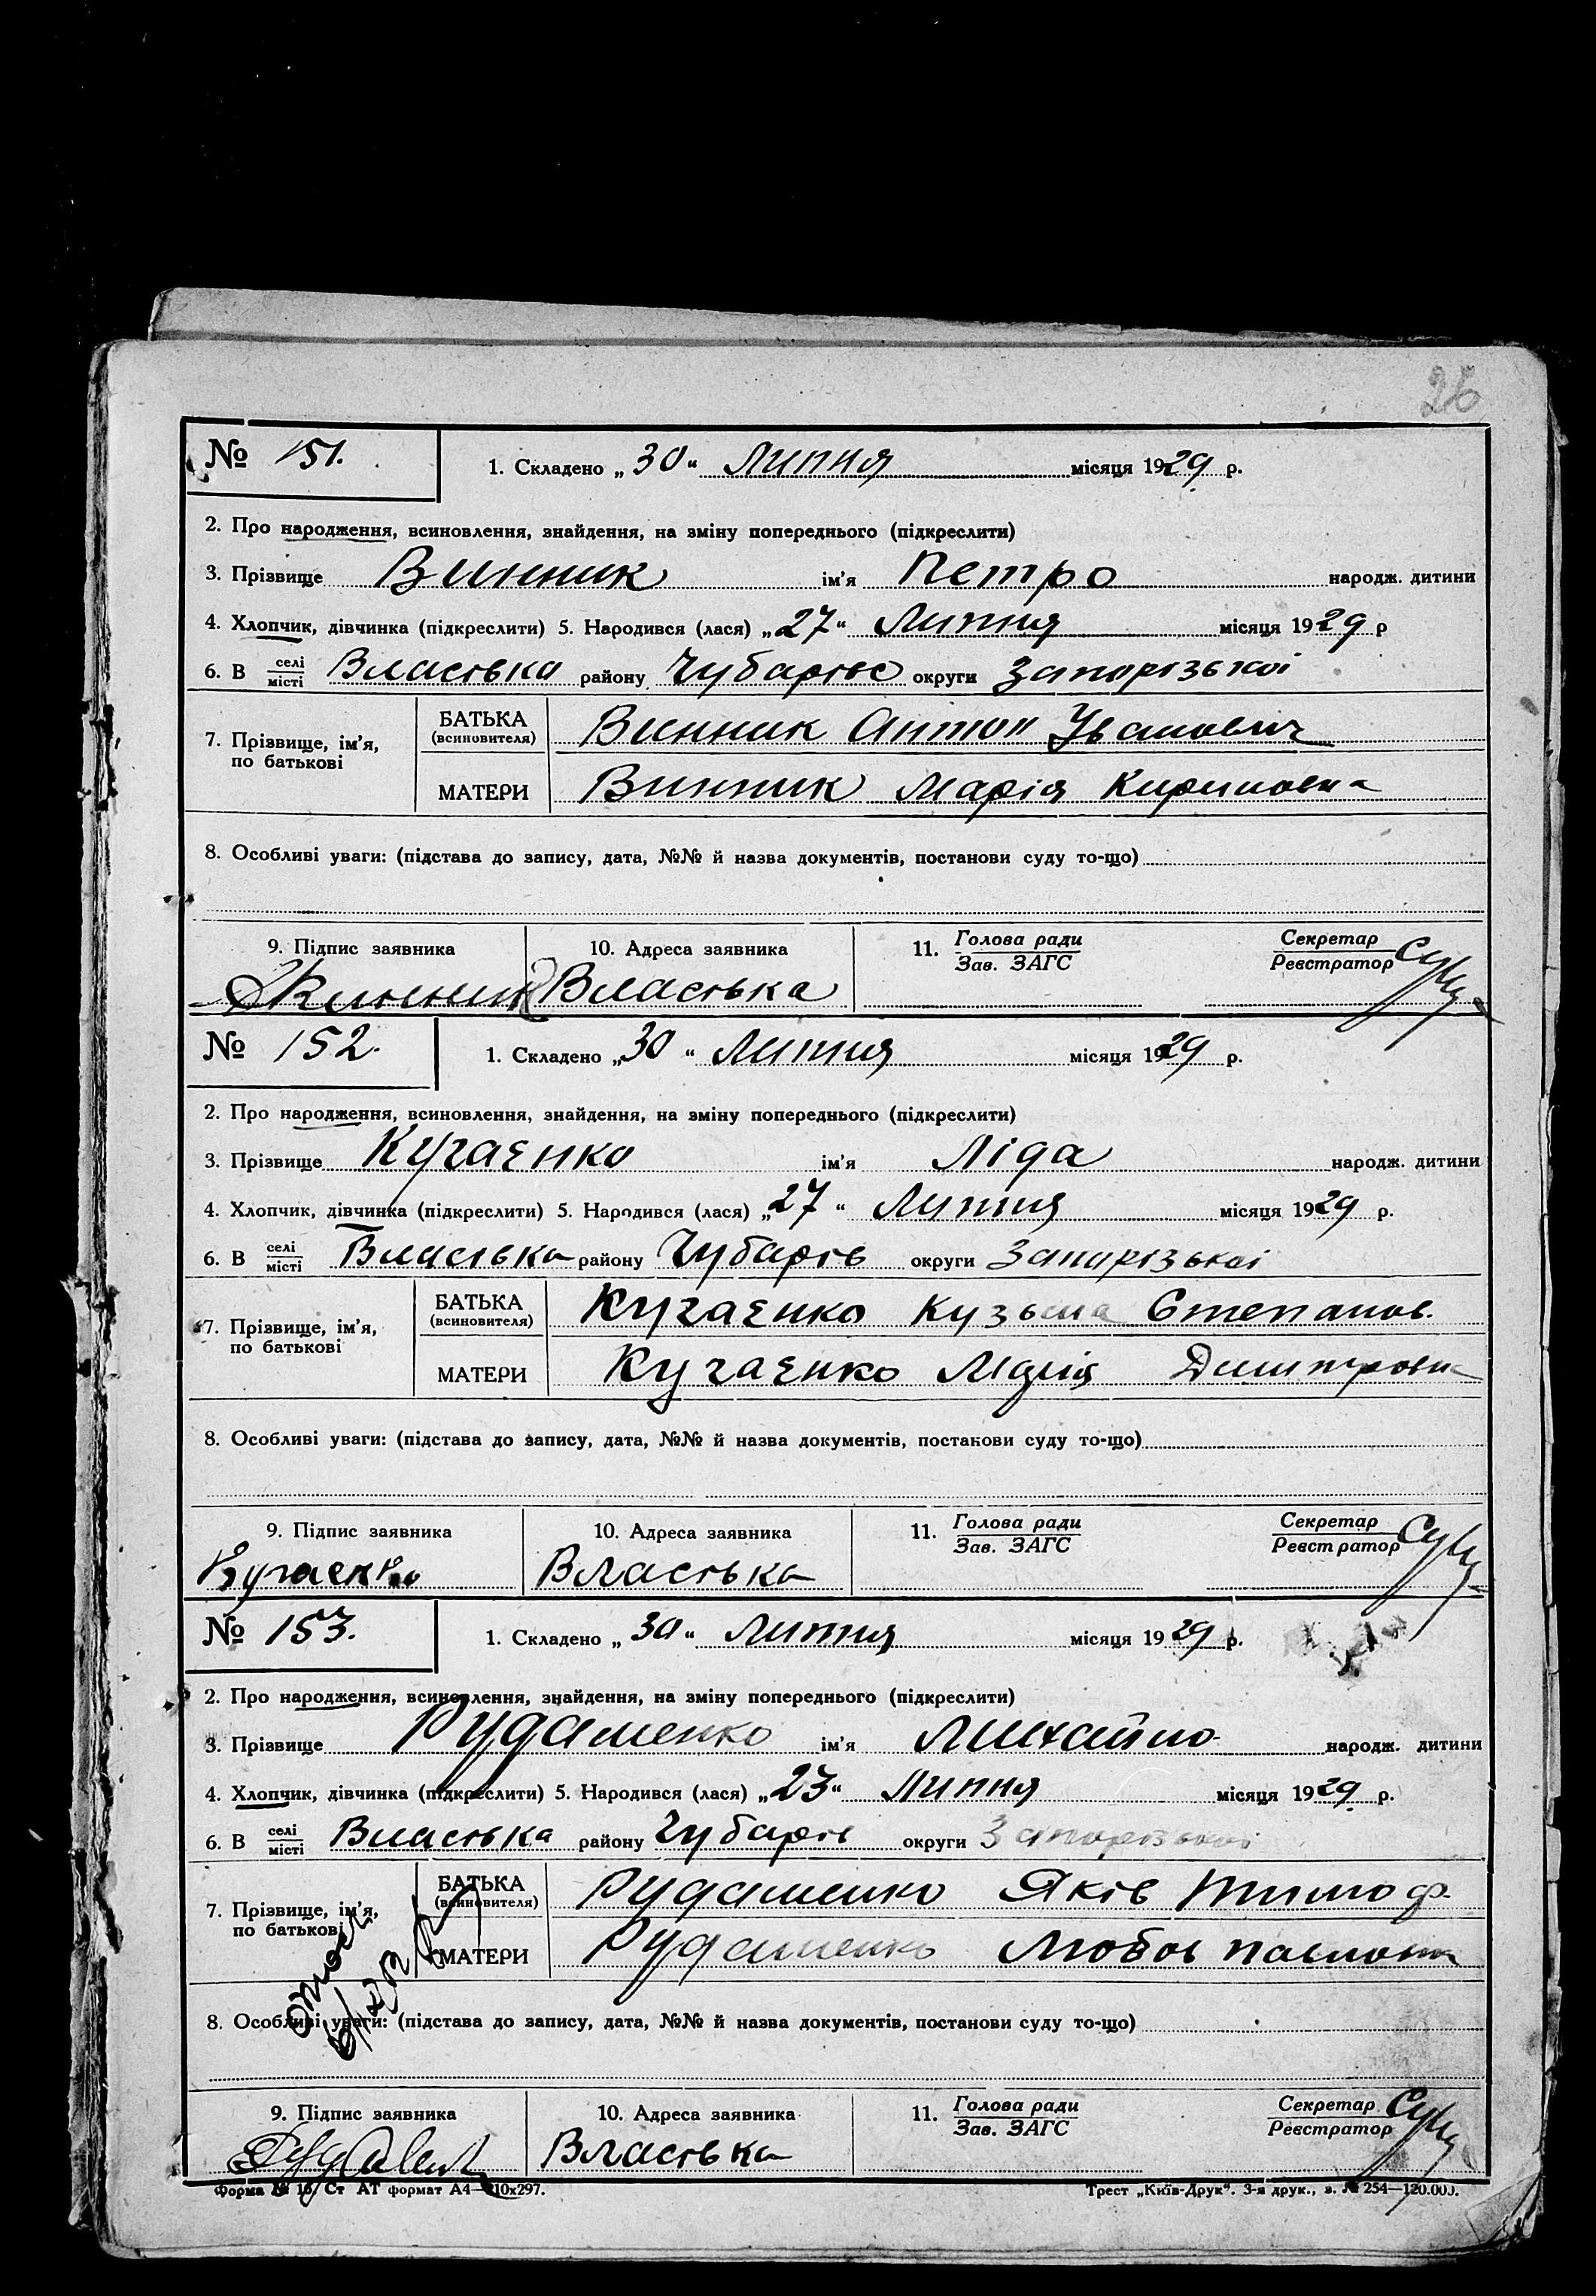 26
№ 151. 1. Складено „30“ Липня місяця 1929 р.
2. Про народження, всиновлення, знайдення, на зміну попереднього (підкреслити)
3. Прізвище Винник ім'я Петро народж. дитини
4. Хлопчик, дівчинка (підкреслити) 5. Народився (лася) „27“ Липня місяця 1929 р
6. В селі/місті Власівка району округи Запорізької
7. Прізвище, ім'я, по батькові БАТЬКА (всиновителя) Винник Антон Іванович
МАТЕРИ Винник Марія
8. Особливі уваги: (підстава до запису, дата, №№ й назва документів, постанови суду то-що)
9. Підпис заявника 10. Адреса заявника 11. Голова ради/Зав. ЗАГС Секретар/Реєстратор
Винник Власівка
№ 152. 1. Складено „30“ Липня місяця 1929 р.
2. Про народження, всиновлення, знайдення, на зміну попереднього (підкреслити)
3. Прізвище Кучаєнко ім'я Ліда народж. дитини
4. Хлопчик, дівчинка (підкреслити) 5. Народився (лася) „27“ Липня місяця 1929 р.
6. В селі/місті Власівка району Чубарів округи Запорізької
7. Прізвище, ім'я, по батькові БАТЬКА (всиновителя) Кучаєнко Кузьма Степанов.
МАТЕРИ Кучаєнко
8. Особливі уваги: (підстава до запису, дата, №№ й назва документів, постанови суду то-що)
9. Підпис заявника 10. Адреса заявника 11. Голова ради/Зав. ЗАГС Секретар/Реєстратор
Кучаенко Власівка
№ 153. 1. Складено „30“ Липня місяця 1929 р.
2. Про народження, всиновлення, знайдення, на зміну попереднього (підкреслити)
3. Прізвище Рудаменко ім'я Михайло народж. дитини
4. Хлопчик, дівчинка (підкреслити) 5. Народився (лася) „23“ Липня місяця 1929 р.
6. В селі/місті Власівка району Чубарів округи Запорізької
7. Прізвище, ім'я, по батькові БАТЬКА (всиновителя) Рудаменко Яків Тимоф.
МАТЕРИ Рудаменко Любов Павловна
8. Особливі уваги: (підстава до запису, дата, №№ й назва документів, постанови суду то-що)
9. Підпис заявника 10. Адреса заявника 11. Голова ради/Зав. ЗАГС Секретар/Реєстратор
Власівка
Форма № 16 Ст АТ формат А4—210х297. Трест „Київ-Друк“. 3-я друк., з. № 254—120.000.